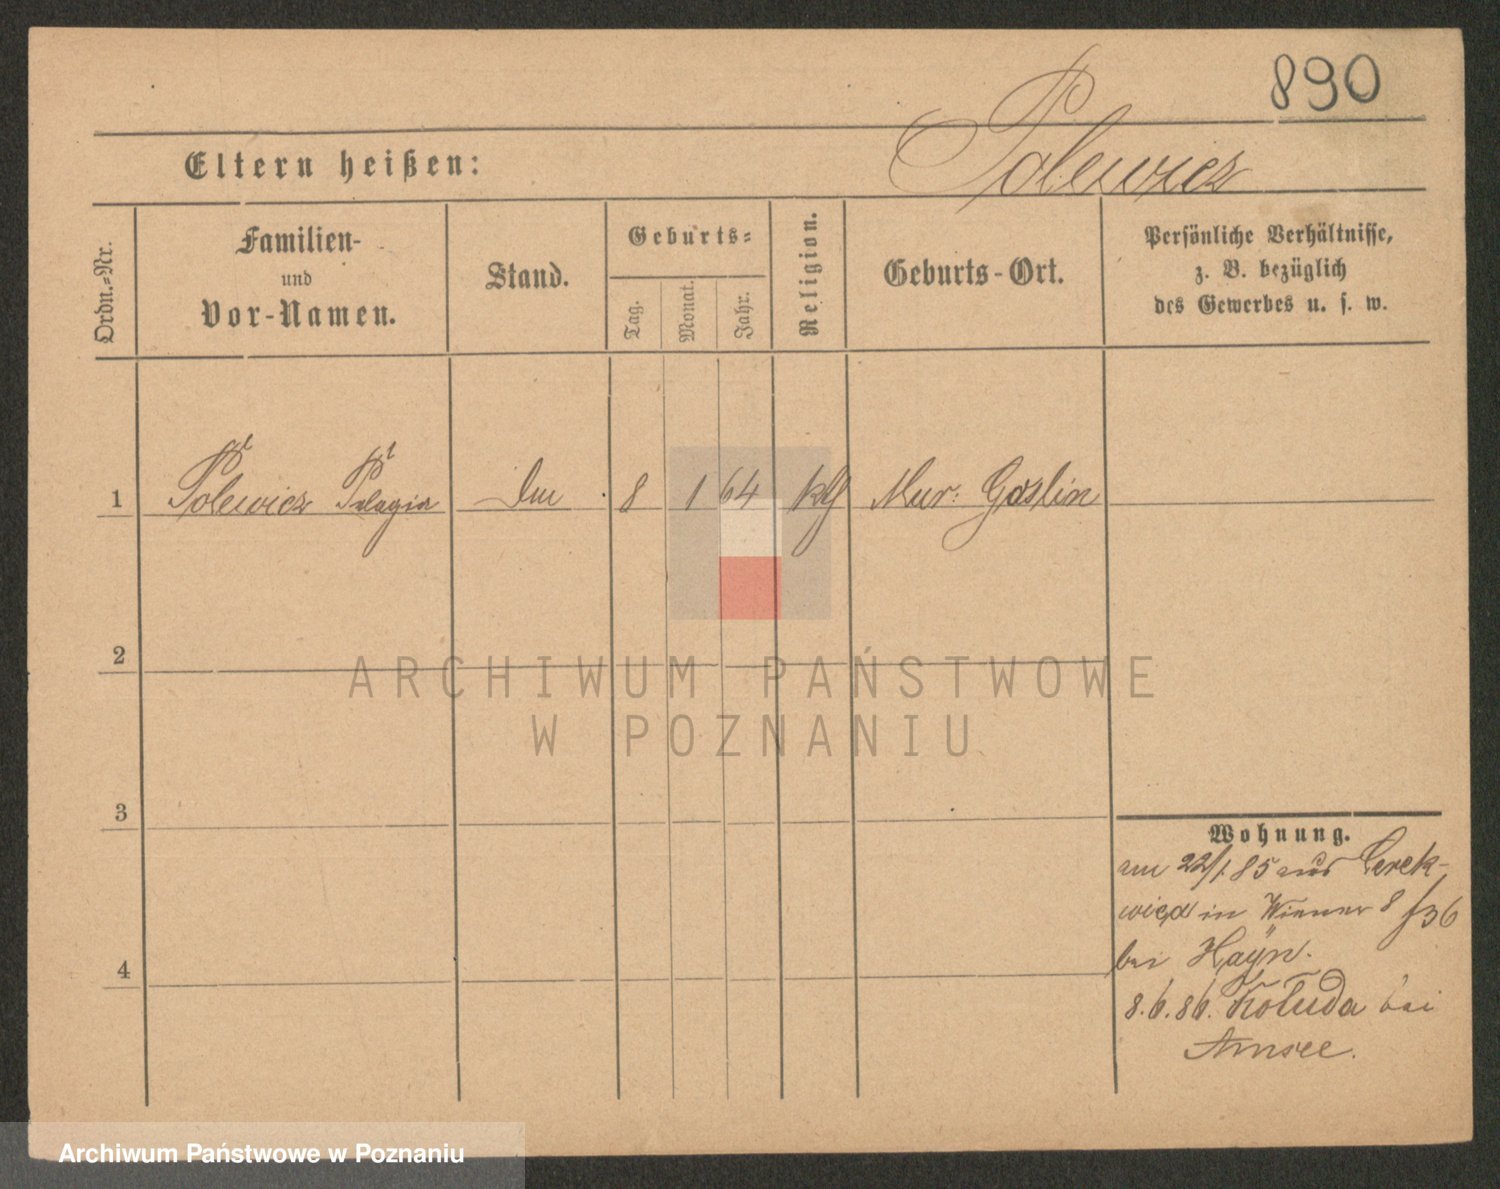 890
Polewicz
Eltern heißen:
Ordn.-Nr.
Familien-
und
Vor-Namen.
Stand.
Geburts-
Tag.
Monat.
Jahr.
Religion.
Geburts-Ort.
Persönliche Verhältnisse,
z. B. bezüglich
des Gewerbes u. s. w.
1 Polewicz Pelagia 8 1 64 kth Mur: Goslin
2
3
4
Wohnung.
am 22/1 85 aus Cerek-
wica in Wiener 8
bei Hayn.
8.6.86. Kołuda bei
Amsee.
ARCHIWUM PAŃSTWOWE
W POZNANIU
Archiwum Państwowe w Poznaniu